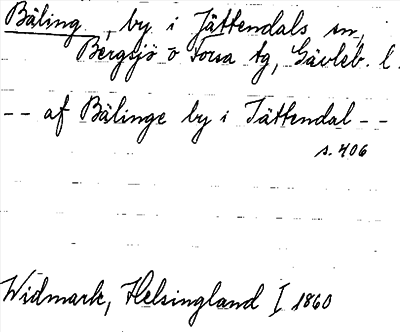 Bäling, by i Jättendals sn,
Bergsjö o Forsa tg, Gävleb. l.
-- af Bälinge by i Jättendal --
s. 406
Widmark, Helsingland I 1860